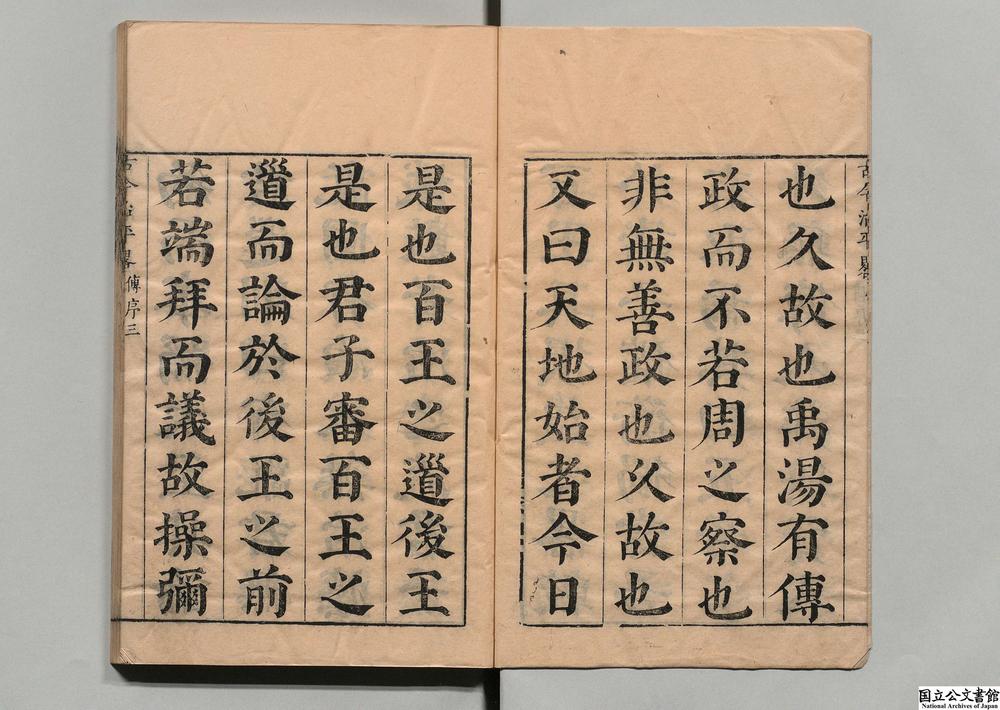 也久故也禹湯有傳
政而不若周之察也
非無善政也久故也
又曰天地始者今日
是也百王之道後王
是也君子審百王之
道而論於後王之前
若端拜而議故操彌
古今治平畧
古今治平畧傳序三
国立公文書館
National Archives of Japan